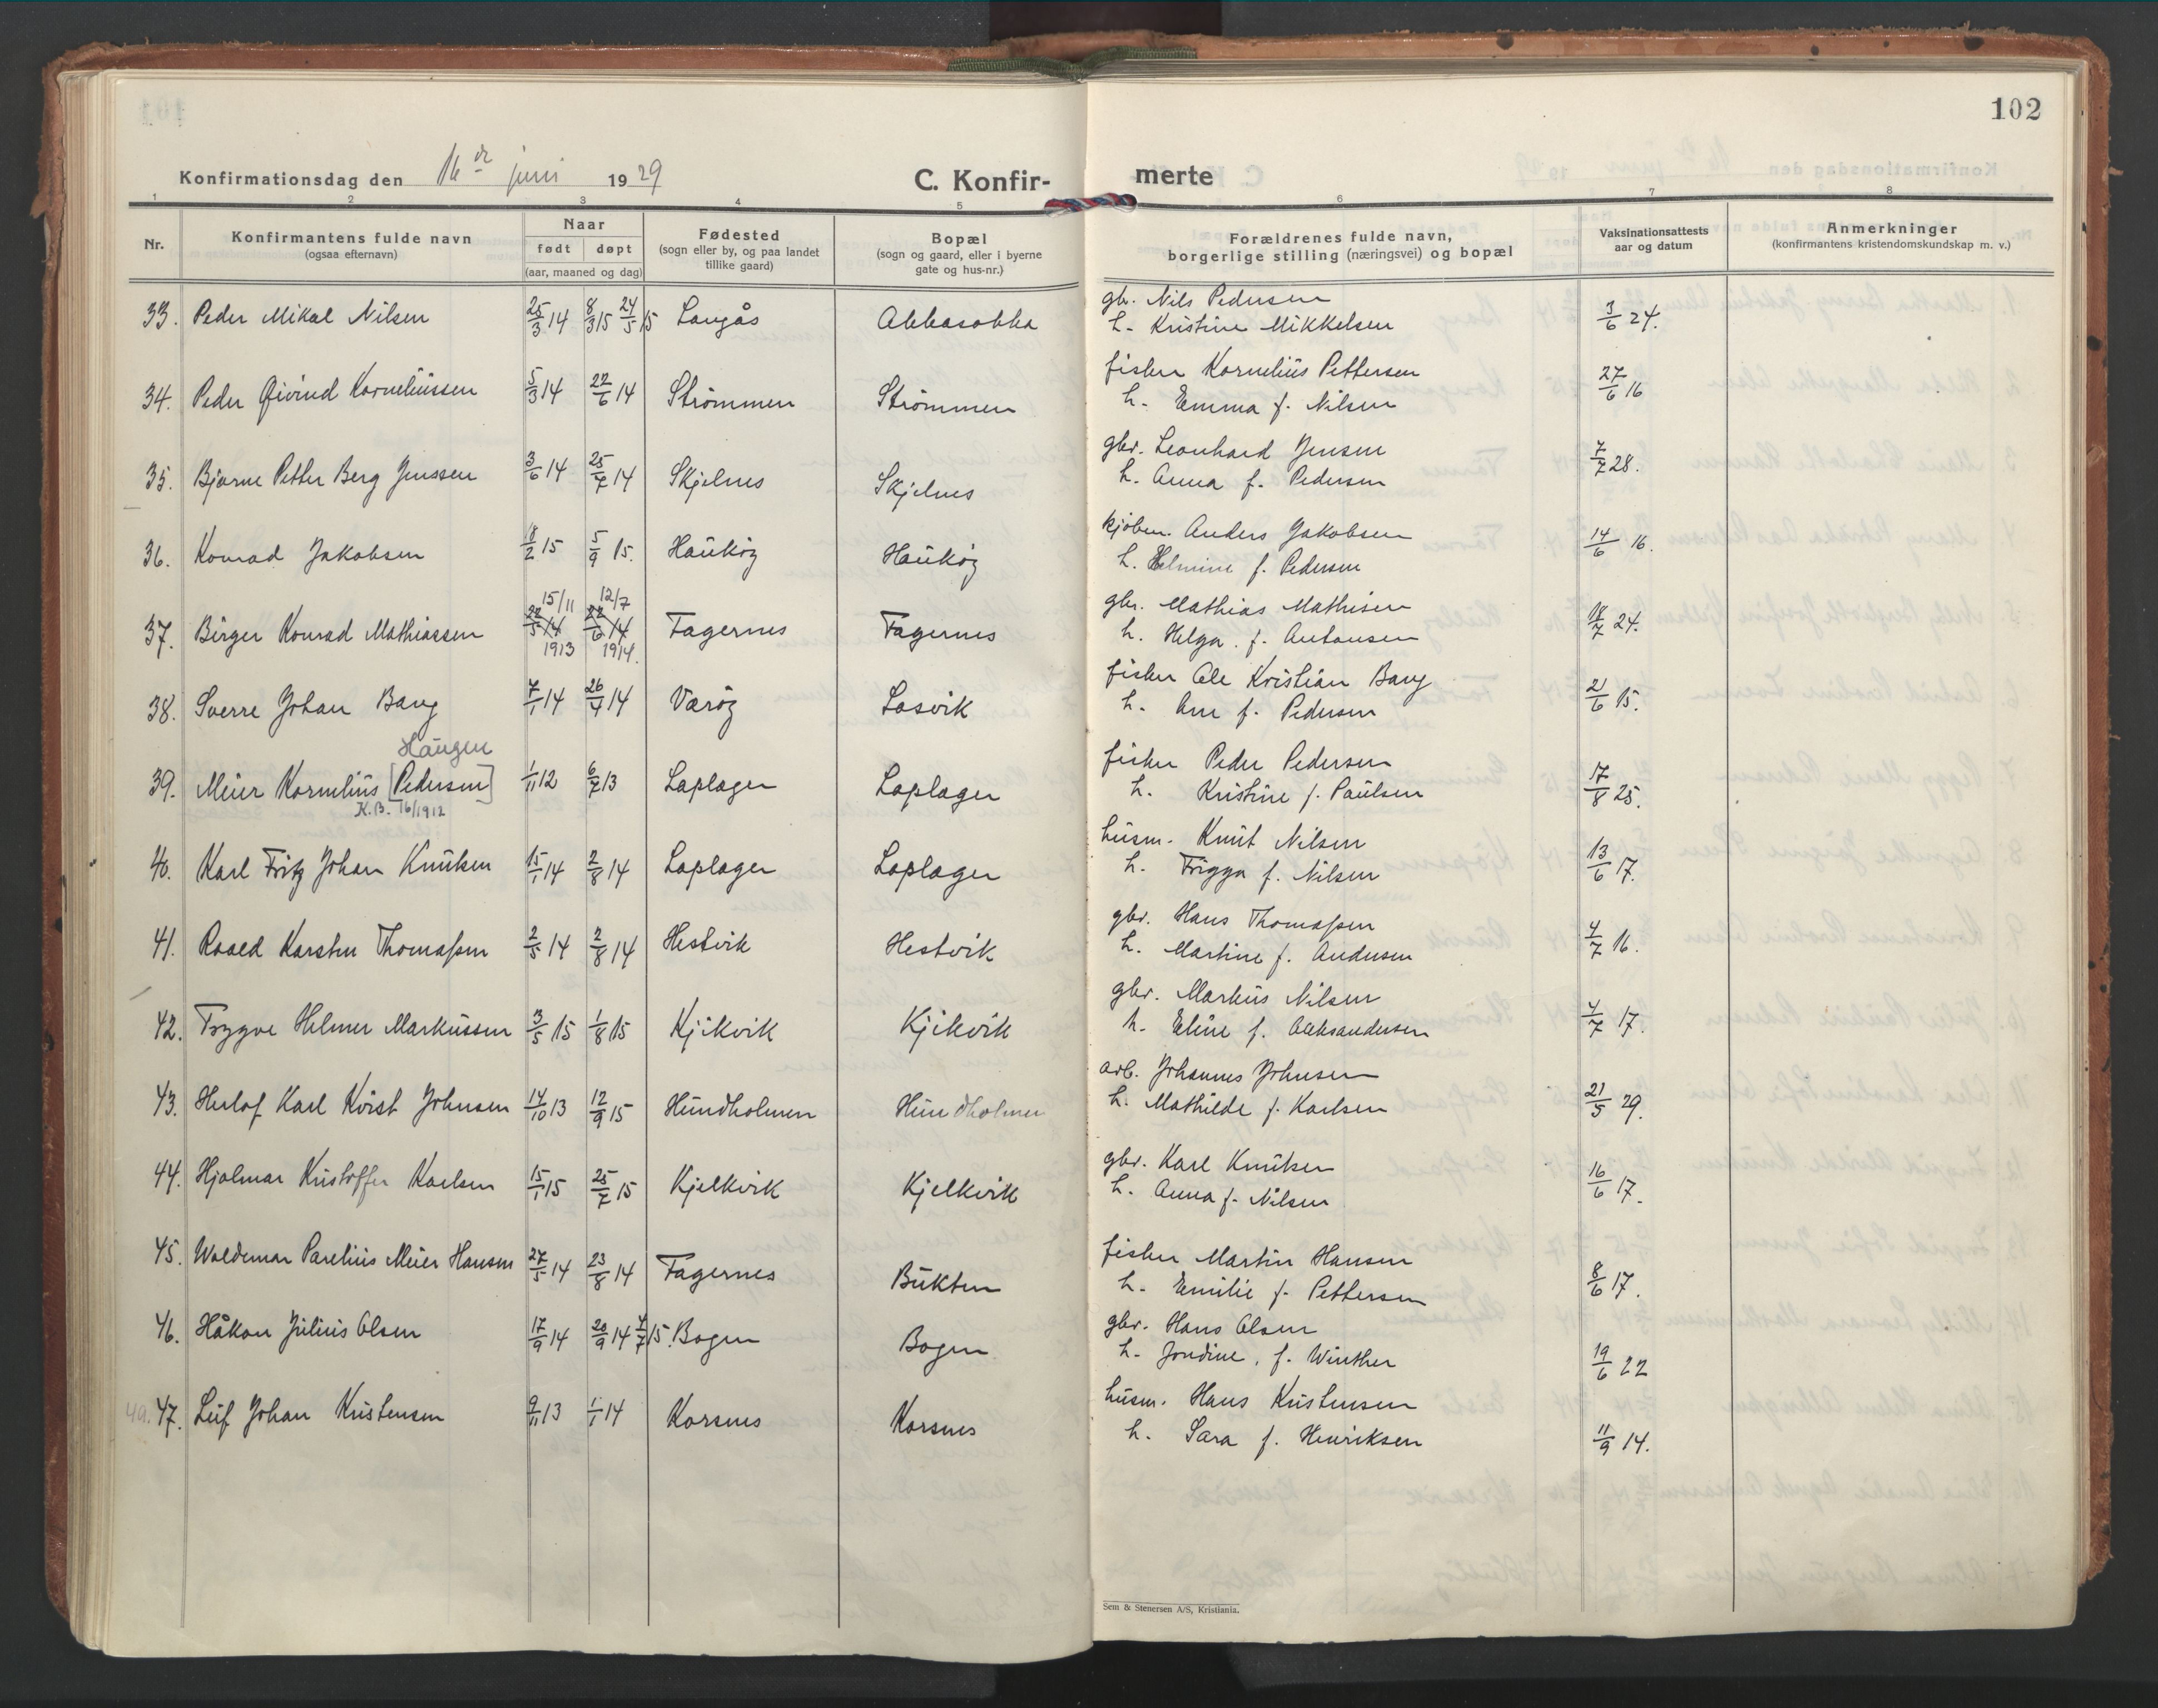 102
Konfirmationsdag den 16de juni 1929 C. Konfir- merte
1 2 3 4 5 6 7 8
Nr. Konfirmantens fulde navn (ogsaa efternavn) Naar født døpt (aar, maaned og dag) Fødested (sogn eller by, og paa landet tillike gaard) Bopæl (sogn og gaard, eller i byerne gate og hus-nr.) Forældrenes fulde navn, borgerlige stilling (næringsvei) og bopæl Vaksinationsattests aar og datum Anmerkninger (konfirmantens kristendomskundskap m. v.)
33. Peder Mikal Nilsen 25/3 14 8/3 15 24/5 15 Langås gbr. Nils Pedersen
h. Kristine Mikkelsen 3/6 24.
34. Peder Øivind Korneliussen 5/3 14 22/6 14 Strömmen Strömmen fisker Kornelius Pettersen
h. Emma f. Nilsen 27/6 16
35. Bjarne Petter Berg Jenssen 3/6 14 25/7 14 Skjelnes Skjelnes gbr. Leonhard Jensen
h. Anna f. Pedersen 7/7 28.
36. Konrad Jakobsen 18/2 15 5/9 15. Haukøy Haukøy kjøbm. Anders Jakobsen
h. Helmine f. Pedersen 14/6 16.
15/11 12/7
37. Birger Konrad Mathiassen 22/5 14 22/6 14 Fagernes Fagernes gbr. Mathias Mathisen
1913 1914. h. Helga f. Antonsen 18/7 24.
38. Sverre Johan Bang 7/1 14 26/4 14 Værøy Losvik fisker Ole Kristian Bang
h. Ane f. Pedersen 21/6 15.
Haugen
39. Meier Kornelius [Pedersen] 1/11 12 6/7 13 Laplager Laplager fisker Peder Pedersen
K.B. 16/1912 h. Kristine f. Paulsen 17/8 25.
40. Karl Fritz Johan Knutsen 15/1 14 2/8 14 Laplager Laplager husm. Knut Nilsen
h. Frigga f. Nilsen 13/6 17.
41. Roald Karsten Thomassen 2/5 14 2/8 14 Hestvik Hestvik gbr. Hans Thomassen
h. Martine f. Andersen 4/7 16.
42. Trygve Helmer Markussen 3/5 15 1/8 15 Kjikvik Kjikvik gbr. Markus Nilsen
h. Eline f. Aleksandersen 4/7 17.
43. Herlof Karl Kvist Johnsen 14/10 13 12/9 15 Hundholmen Hundholmen arb. Johannes Johnsen
h. Mathilde f. Karlsen 21/5 29.
44. Hjalmar Kristoffer Karlsen 15/1 15 25/7 15 Kjelkvik Kjelkvik gbr. Karl Knutsen
h. Anna f. Nilsen 16/6 17.
45. Waldemar Parelius Meier Hansen 27/5 14 23/8 14 Fagernes Bukten fisker Martin Hansen
h. Emilie f. Pettersen 8/6 17.
46. Håkon Julius Olsen 17/9 14 20/9 14 4/7 15. Bogen Bogen gbr. Hans Olsen
h. Jondine, f. Winther 19/6 22
47. Leif Johan Kristensen 9/11 13 1/1 14 Korsnes Korsnes husm. Hans Kristensen
h. Sara f. Henriksen 11/9 14.
Sem & Stenersen A/S, Kristiania.